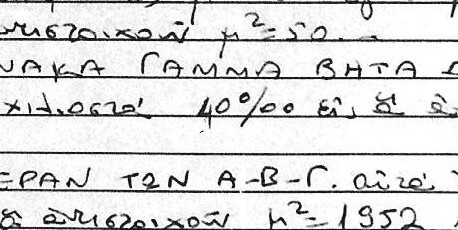 ἀντιστοιχοῦν μ²=50.-
ΝΑΚΑ ΓΑΜΜΑ ΒΗΤΑ
χιλιοστά 40%00 εἰς
ΠΕΡΑΝ ΤΩΝ Α-Β-Γ. αὐτά
ἀντιστοιχοῦν μ²=1952